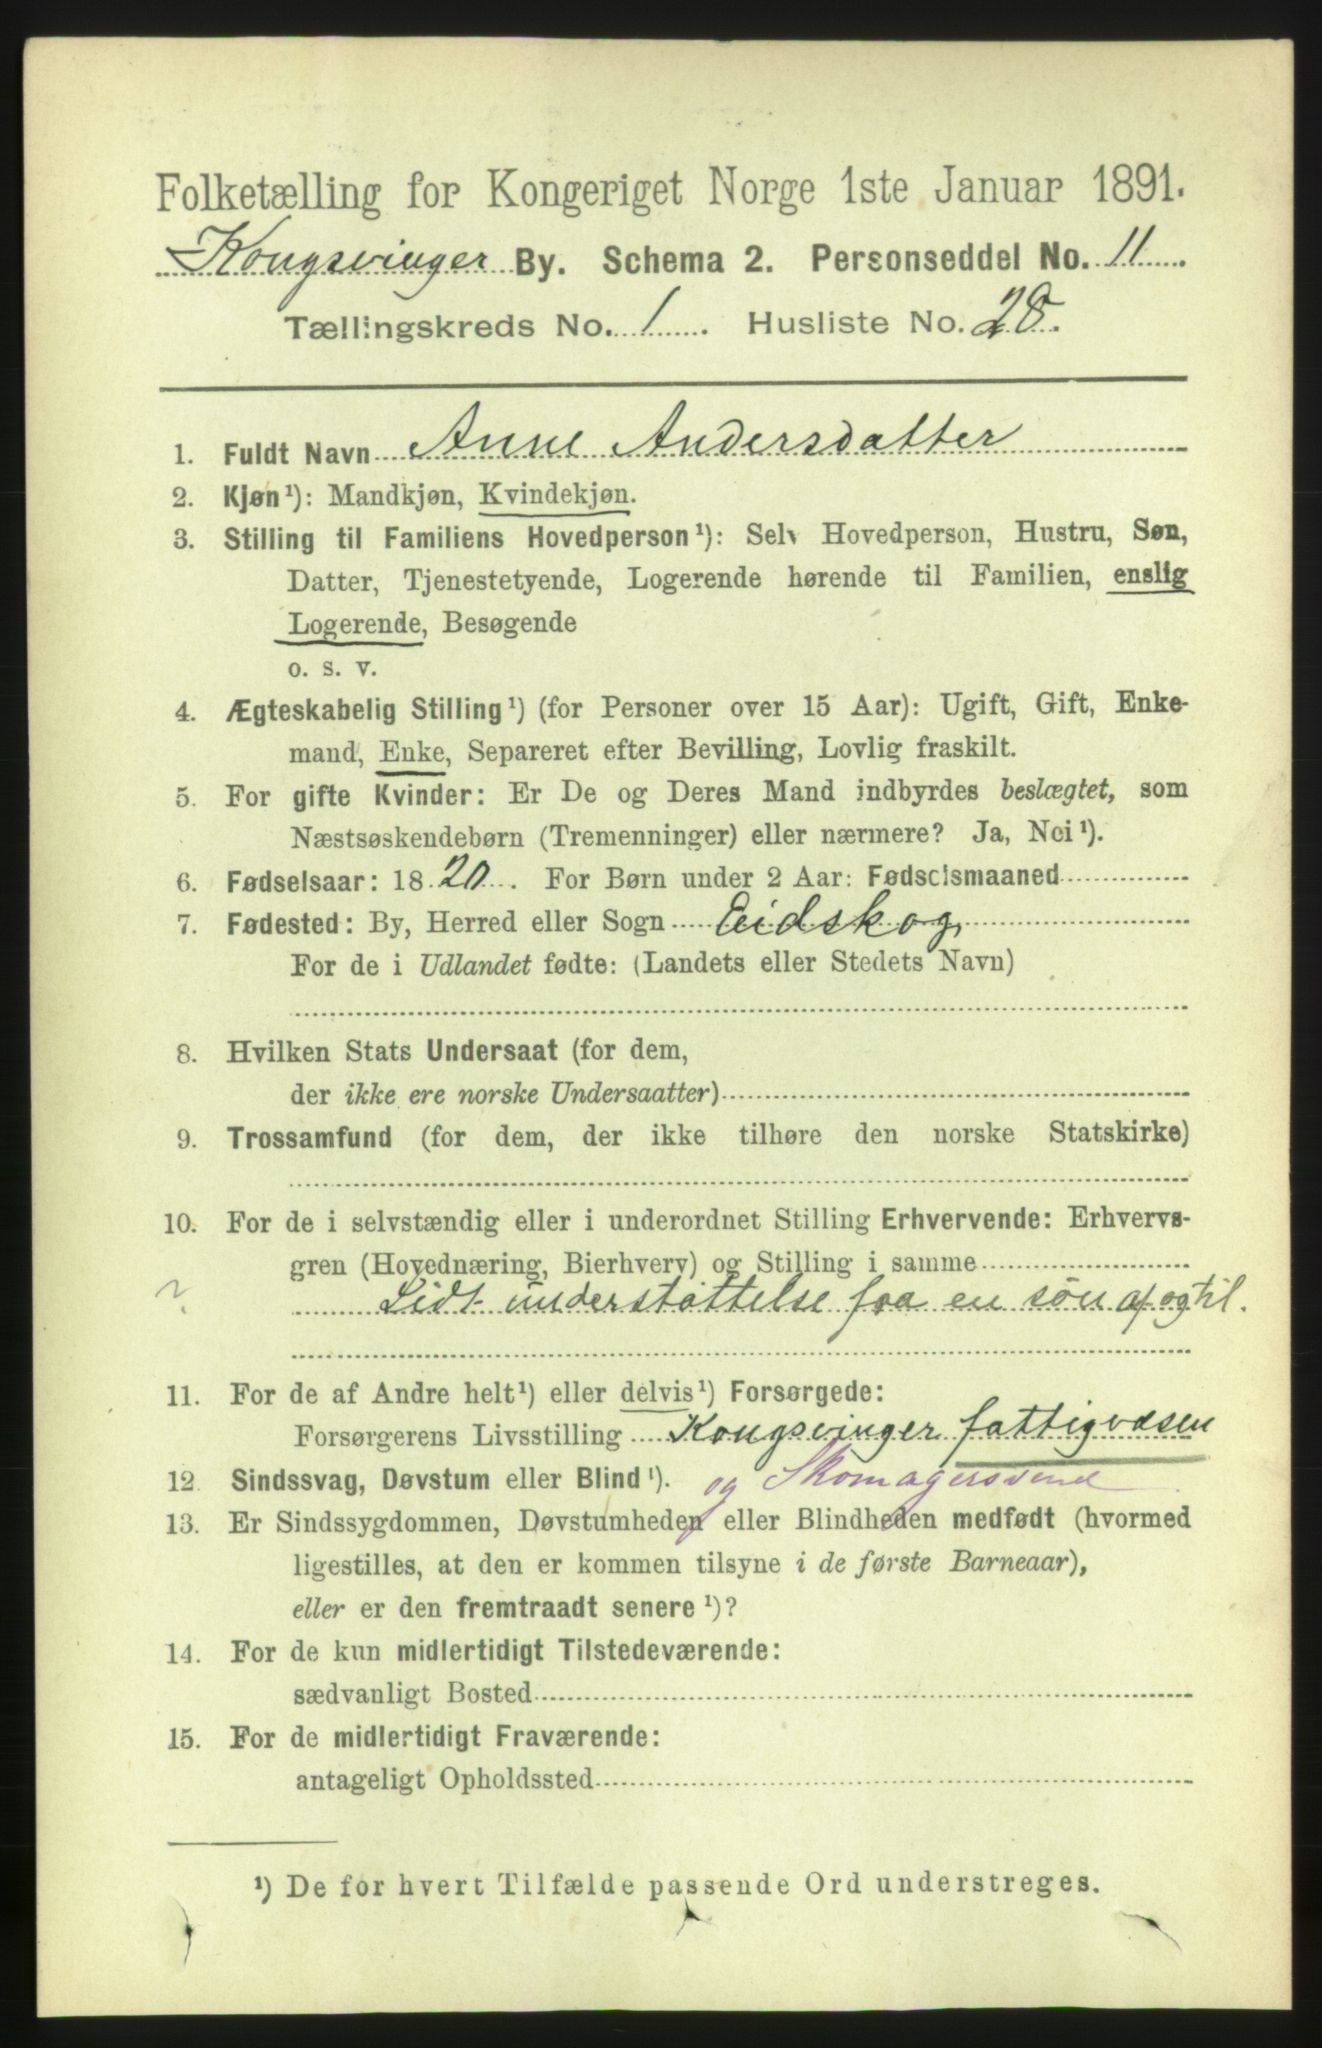 Folketælling for Kongeriget Norge 1ste Januar 1891.
Kongsvinger By. Schema 2. Personseddel No. 11
Tællingskreds No. 1. Husliste No. 28.
1. Fuldt Navn Anne Andersdatter
2. Kjøn¹): Mandkjøn, Kvindekjøn.
3. Stilling til Familiens Hovedperson¹): Selv Hovedperson, Hustru, Søn,
Datter, Tjenestetyende, Logerende hørende til Familien, enslig
Logerende, Besøgende
o. s. v.
4. Ægteskabelig Stilling¹) (for Personer over 15 Aar): Ugift, Gift, Enke-
mand, Enke, Separeret efter Bevilling, Lovlig fraskilt.
5. For gifte Kvinder: Er De og Deres Mand indbyrdes beslægtet, som
Næstsøskendebørn (Tremenninger) eller nærmere? Ja, Nei¹).
6. Fødselsaar: 1820. For Børn under 2 Aar: Fødselsmaaned
7. Fødested: By, Herred eller Sogn Eidskog
For de i Udlandet fødte: (Landets eller Stedets Navn)
8. Hvilken Stats Undersaat (for dem,
der ikke ere norske Undersaatter)
9. Trossamfund (for dem, der ikke tilhøre den norske Statskirke)
10. For de i selvstændig eller i underordnet Stilling Erhvervende: Erhvervs-
gren (Hovednæring, Bierhverv) og Stilling i samme
? Lidt understøttelse fra en søn af og til.
11. For de af Andre helt¹) eller delvis¹) Forsørgede:
Forsørgerens Livsstilling Kongsvinger fattigvæsen
12 Sindssvag, Døvstum eller Blind¹). og Skomagersvend
13. Er Sindssygdommen, Døvstumheden eller Blindheden medfødt (hvormed
ligestilles, at den er kommen tilsyne i de første Barneaar),
eller er den fremtraadt senere¹)?
14. For de kun midlertidigt Tilstedeværende:
sædvanligt Bosted
15. For de midlertidigt Fraværende:
antageligt Opholdssted
¹) De for hvert Tilfælde passende Ord understreges.